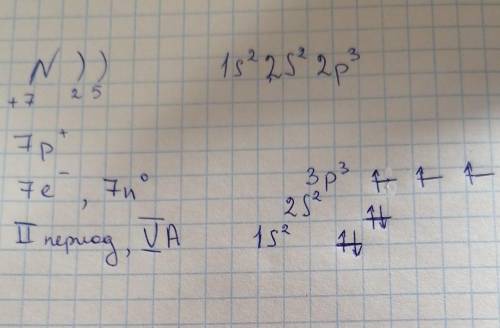 N ) ) 1s² 2s² 2p³
+7 2 5
7p⁺
7e⁻, 7n⁰ 3p³ ↑ ↑ ↑
2s² ↑↓
II период, VA 1s² ↑↓